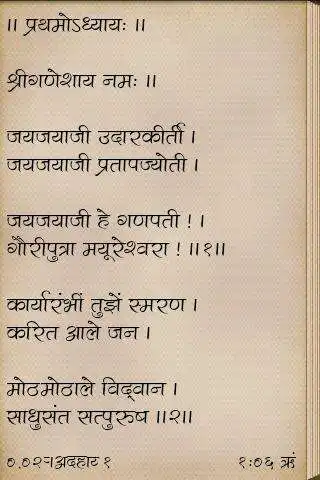 ।। प्रथमोऽध्यायः ।।
श्रीगणेशाय नमः ।।
जयजयाजी उदारकीर्ती ।
जयजयाजी प्रतापज्योती ।
जयजयाजी हे गणपती ! ।
गौरीपुत्रा मयूरेश्वरा ! ।।१।।
कार्यारंभीं तुझें स्मरण ।
करित आले जन ।
मोठमोठाले विद्वान ।
साधुसंत सत्पुरुष ।।२।।
०.०२%
१:०६